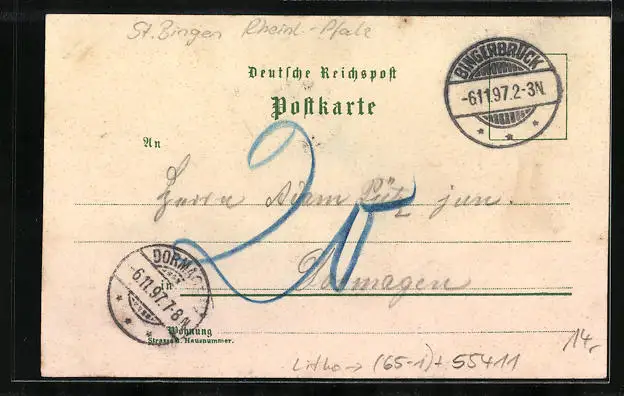 St. Bingen Rheinl.-Pfalz
Deutsche Reichspost
Postkarte
BINGERBRÜCK
-6.11.97.2-3N.
An
Herrn Adam Lütz jun.
20
Dormagen
in
DORMAGEN
-6.11.97.7-8N.
Wohnung
Strasse u. Hausnummer.
Litho → (65-1)+ 55411
14,-